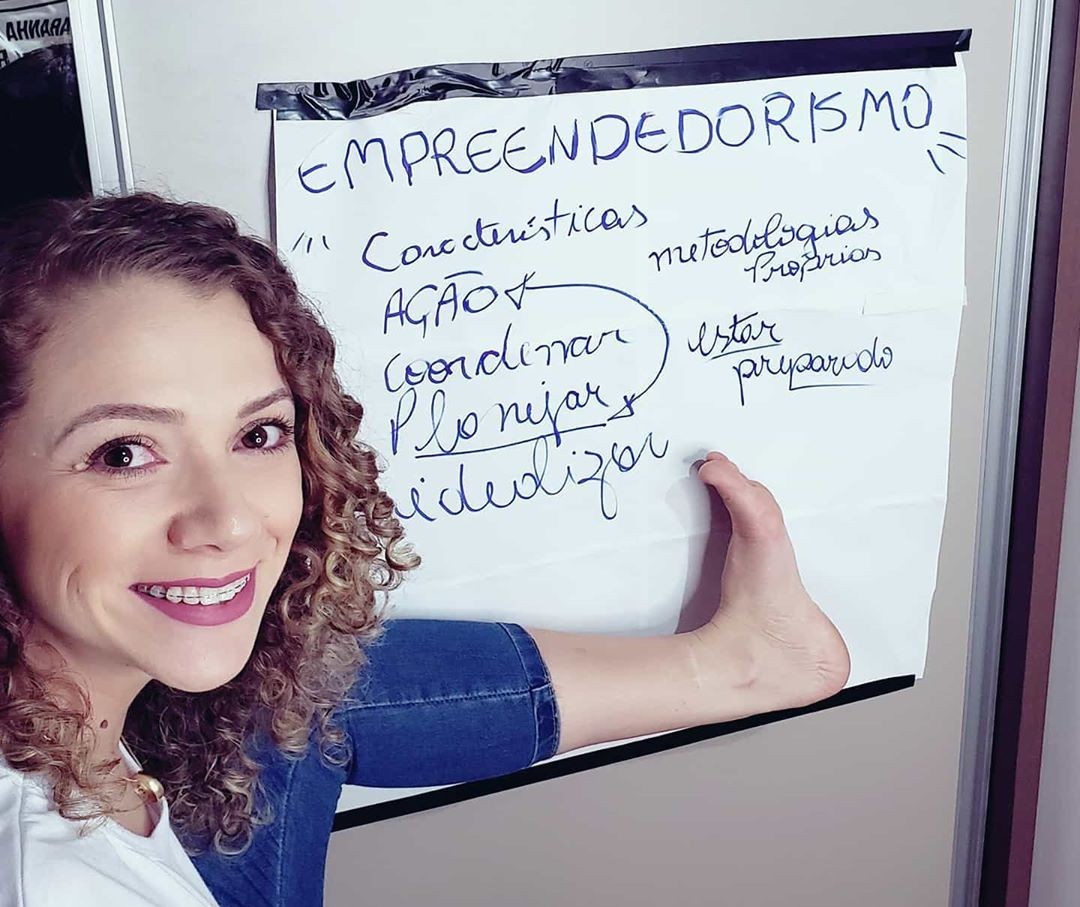 EMPREENDEDORISMO
Características
AÇÃO
Coordenar
Planejar
idealizar
metodologias
Próprias
estar
preparado